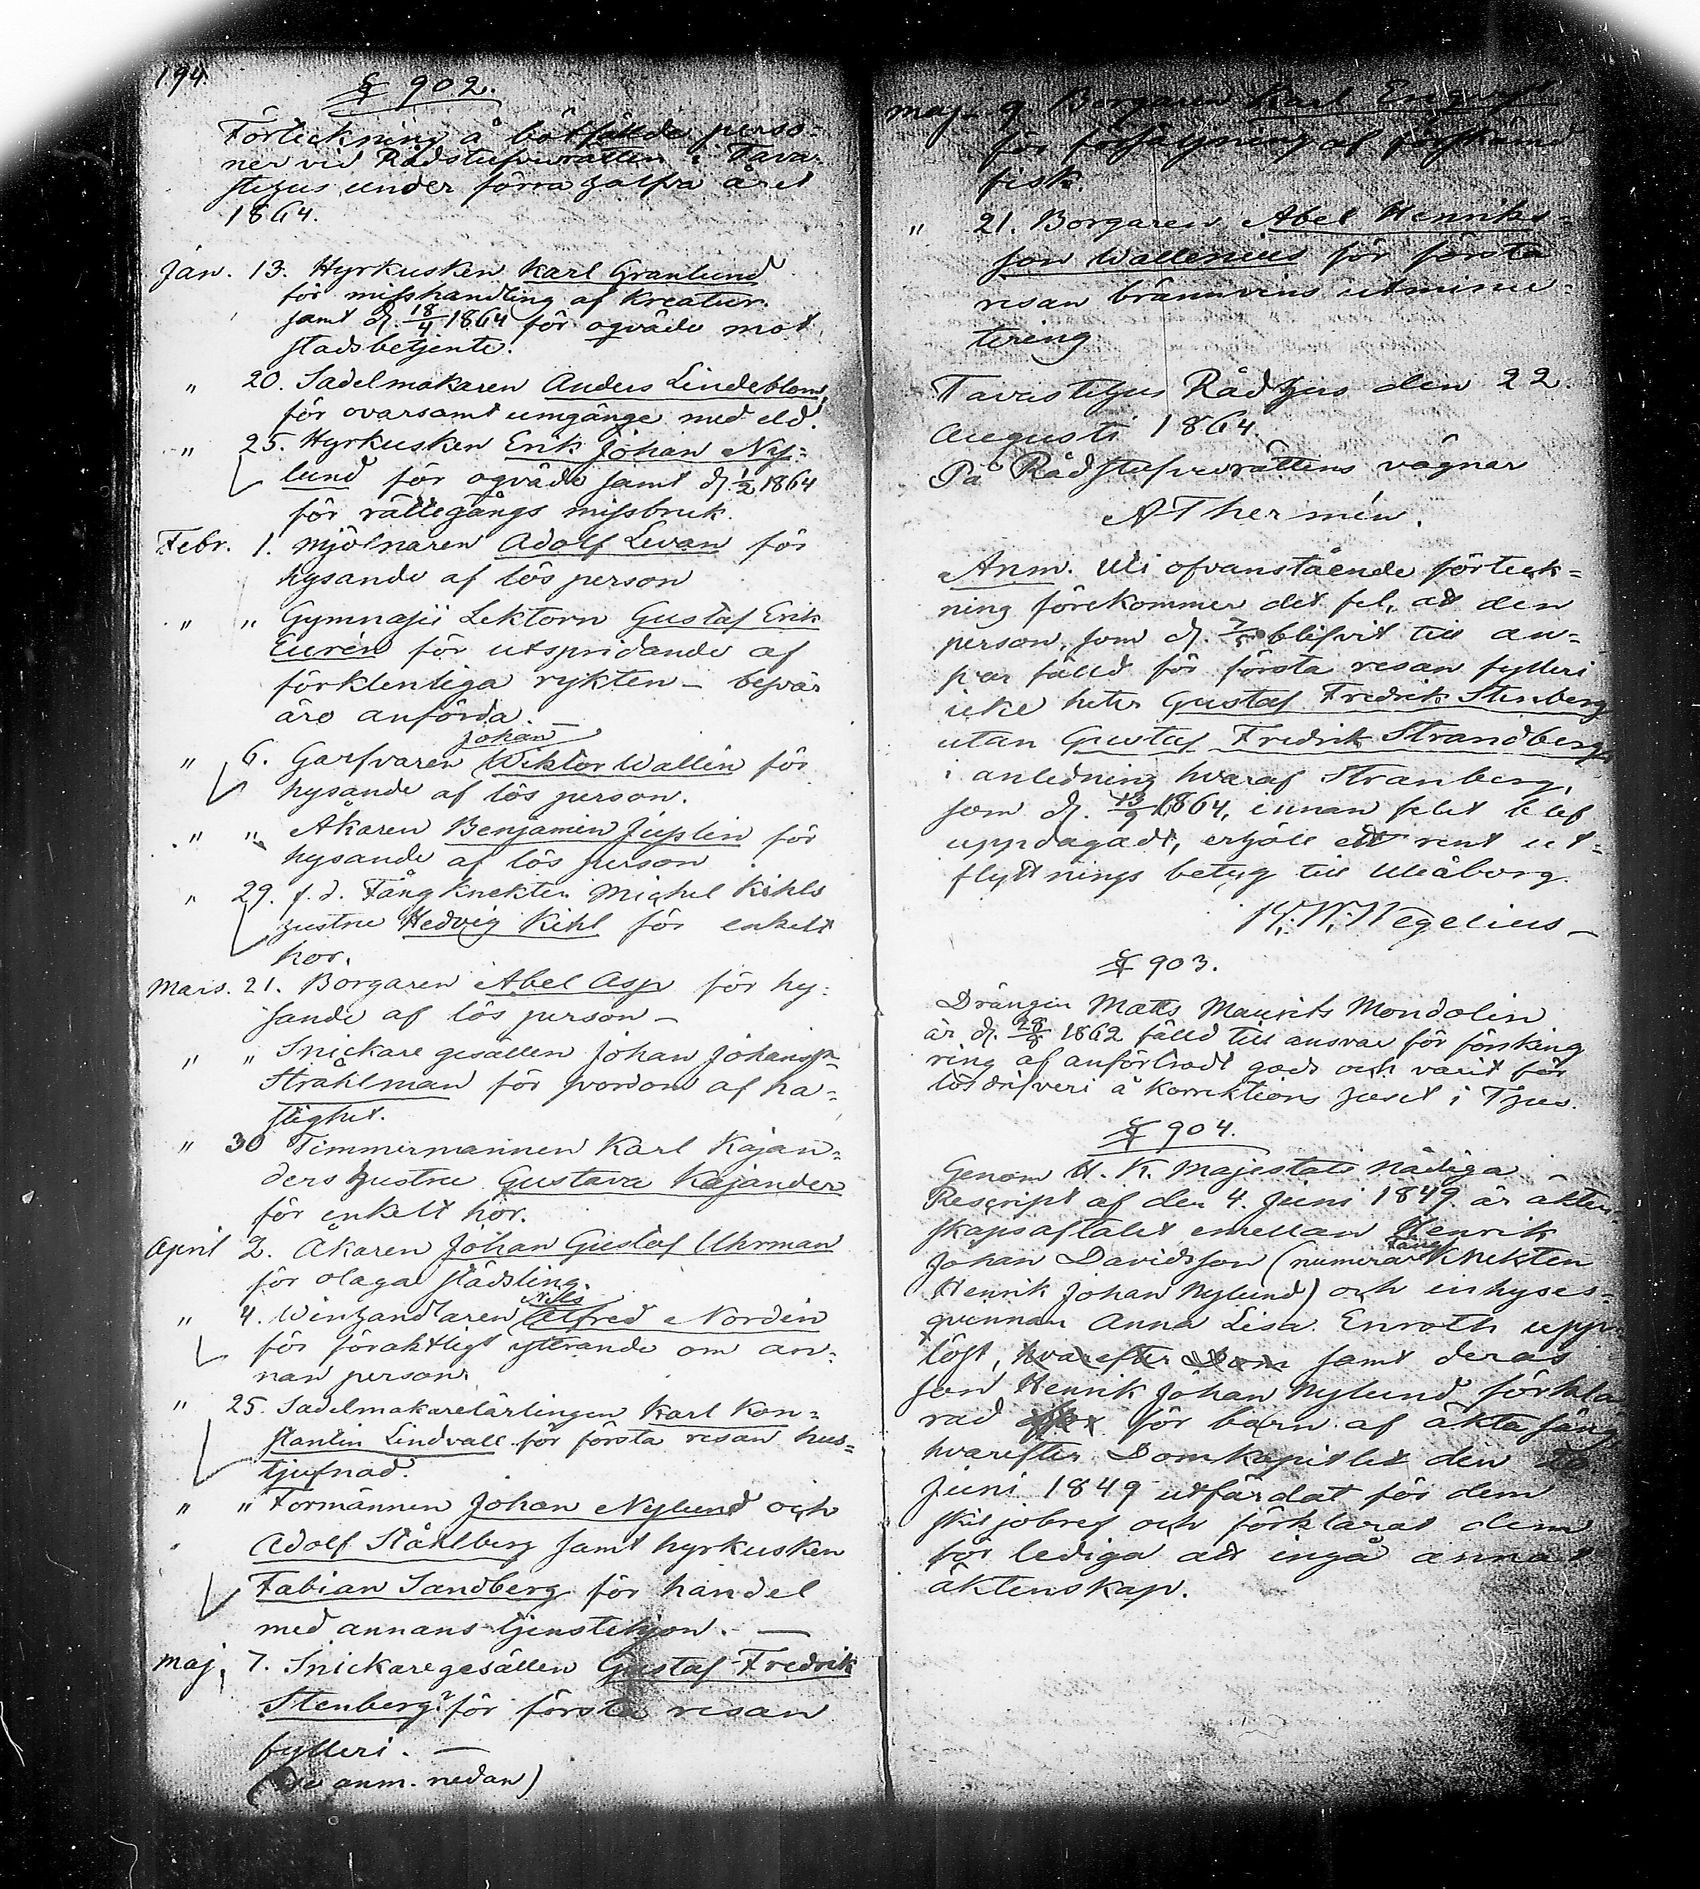 194.
§ 902.
Förteckning å bötfällde perso=
ner vid Rådstufvurätten i Tava-
stehus under förra halfva året
1864.
Jan. 13. Hyrkusken Karl Granlund
för misshandling af kreatur.
samt d. 18/4 1864 för oqväde mot
stadsbetjente.
" 20. Sadelmakaren Anders Lindeblom,
för ovarsamt umgänge med eld.
" 25. Hyrkusken Erik Johan Ny=
lund för oqväde samt d. 1/2 1864
för rättegångs missbruk.
Febr. 1. Mjölnaren Adolf Levan för
hysande af lös person
" " Gymnasii Lektorn Gustaf Erik
Eurén för utspridande af
förklenliga rykten – besvär
äro anförda. –
Johan
" 6. Garfvaren Wiktor Wallin för
hysande af lös person.
" " Åkaren Benjamin Juslin för
hysande af lös person
" 29. f. d. Fångknekten Michel Kihls
hustru Hedvig Kihl för enkelt
hor.
Mars. 21. Borgaren Abel Asp för hy=
sande af lös person –
" " Snickare gesällen Johan Johansson
Stråhlman för svordom af ha=
stighet.
" 30 Timmermannen Karl Kajan=
ders hustru Gustava Kajander
för enkelt hor.
April 2. Åkaren Johan Gustaf Uhrman
för olaga städsling.
Nils
" 4. Winhandlaren Alfred Nordin
för föraktligt yttrande om an=
nan person.
" 25. Sadelmakarelärlingen Karl Kon=
stantin Lindvall för första resan hus=
tjufnad.
" " Formännen Johan Nylund och
Adolf Ståhlberg samt hyrkusken
Fabian Sandberg för handel
med annans tjenstehjon. –
Maj, 7. Snickaregesällen Gustaf Fredrik
Stenberg? för första resan
fylleri. –
(Se anm. nedan)
Maj. 9. Borgaren Karl Engqvist
för försäljning af förskämd
fisk.
" 21. Borgaren Abel Henriks=
son Wallenius för första
resan brännvins utminu=
tering
Tavastehus Rådhus den 22.
Augusti 1864.
På Rådstufvurättens vägnar
A Thermén.
Anm. Uti ofvanstående förteck=
ning förekommer det fel, att den
person, som d. 7/5 blifvit till an=
svar fälld för första resan fylleri
icke heter Gustaf Fredrik Stenberg
utan Gustaf Fredrik Strandberg
i anledning hvaraf Stranberg,
som d. 13/9 1864, innan felet blef
uppdagadt, erhöll ett rent ut=
flyttnings betyg till Uleåborg.
K. W. Wegelius –
§ 903.
Drängen Matts Maurits Mondolin
är d. 1862 fälld till ansvar för försking
ring af anförtrodt gods och varit för
lösdrifveri å Korrektions huset i Thus.
§ 904.
Genom H. K. Majestäts Nådiga
Rescript af den 4. Juni 1849. är äkten=
skapsaftalet emellan Henrik
Fång
Johan Davidsson (numera Knekten
Henrik Johan Nylund) och inhyses=
qvinnan Anna Lisa Enroth upp=
löst, hvarefter Dom samt deras
son Henrik Johan Nylund förkla
rad för barn af äkta säng
hvarefter Domkapitlet den
Juni 1849 utfärdat för dem
skiljobref och förklarat dem
för lediga att ingå annat
äktenskap.